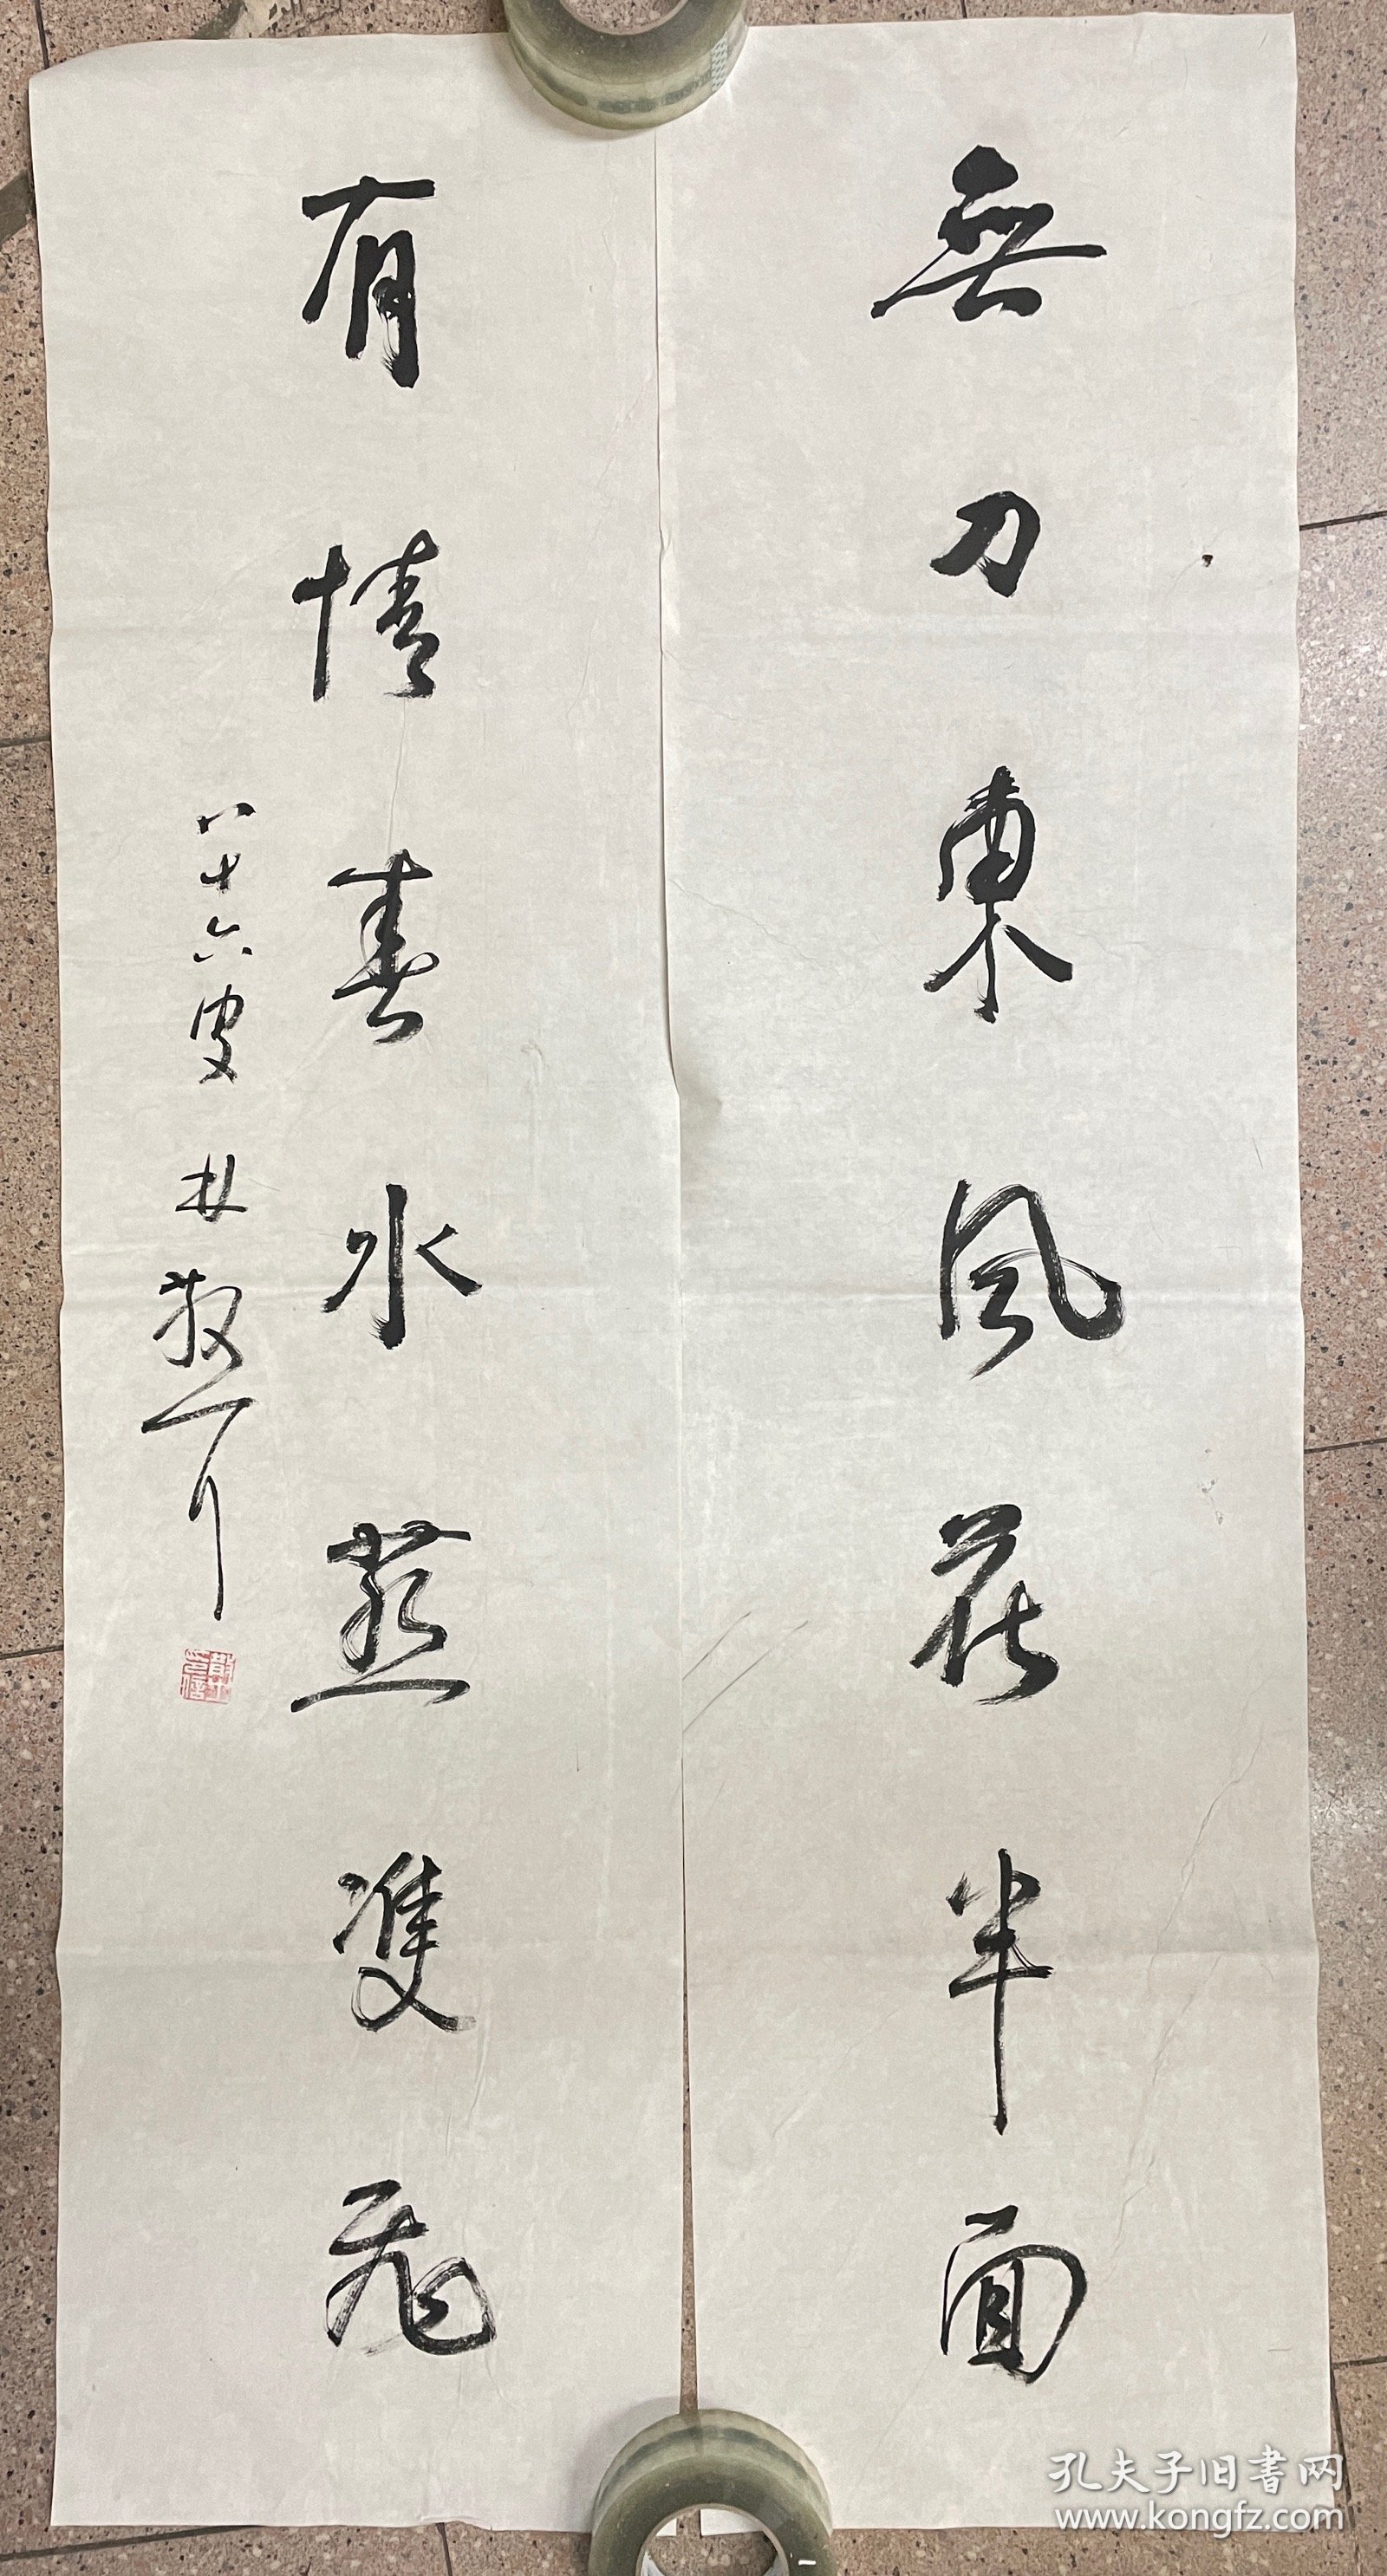 無力東風花半面
有情春水燕雙飛
八十六叟林散耳
孔夫子旧書网
www.kongfz.com